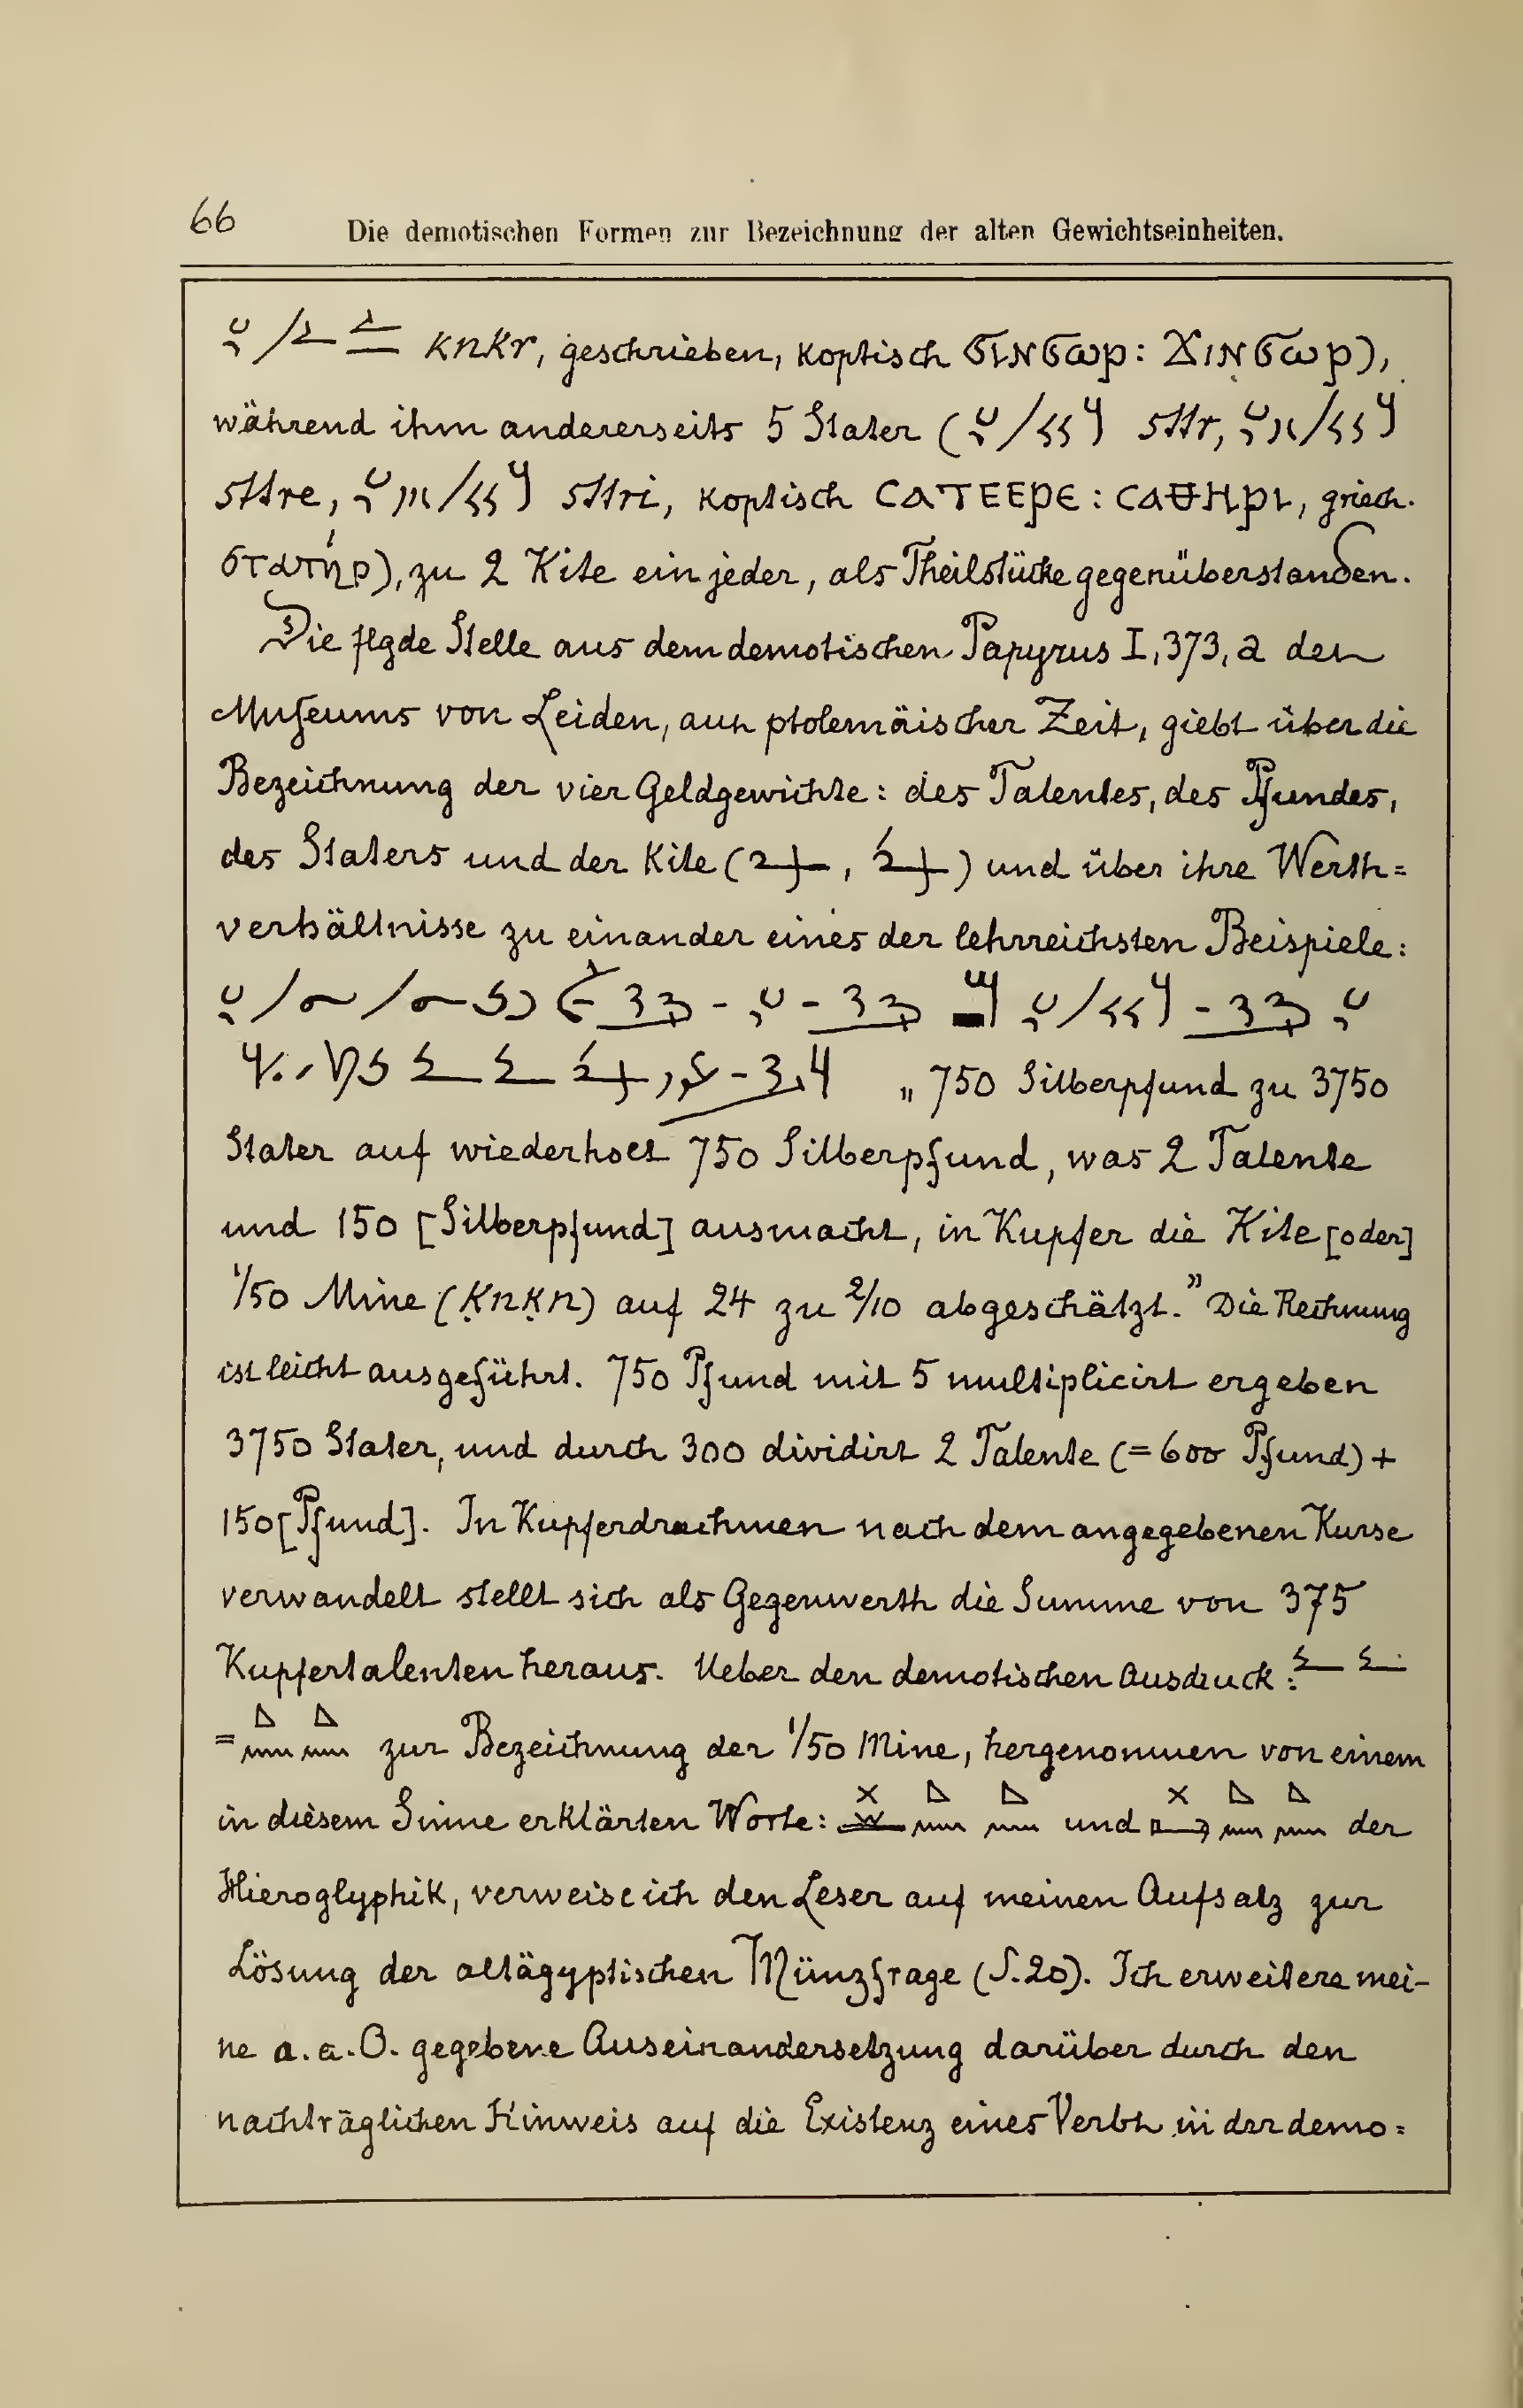 66 Die demotischen Formen zur Bezeichnung der alten Gewichtseinheiten.
knkr, geschrieben, koptisch ϬⲓⲛϬⲱⲣ: Ϫⲓⲛϭⲱⲣ),
während ihm andererseits 5 Stater ( sttr,
sttre, sttri, koptisch ⲥⲁⲧⲉⲉⲣⲉ: ⲥⲁⲑⲏⲣⲓ, griech.
στατήρ), zu 2 Kite ein jeder, als Theilstücke gegenüberstanden.
Die flgde Stelle aus dem demotischen Papyrus I, 373, a des
Museums von Leiden, aus ptolemäischer Zeit, giebt über die
Bezeichnung der vier Geldgewichte: des Talentes, des Pfundes,
des Staters und der Kite ( , ) und über ihre Werth=
verhältnisse zu einander eines der lehrreichsten Beispiele:
„750 Silberpfund zu 3750
Stater auf wiederholt 750 Silberpfund, was 2 Talente
und 150 [Silberpfund] ausmacht, in Kupfer die Kite [oder]
1/50 Mine (ḳnḳn) auf 24 zu 2/10 abgeschätzt.” Die Rechnung
ist leicht ausgeführt. 750 Pfund mit 5 multiplicirt ergeben
3750 Stater, und durch 300 dividirt 2 Talente (= 600 Pfund) +
150 [Pfund]. In Kupferdrachmen nach dem angegebenen Kurse
verwandelt stellt sich als Gegenwerth die Summe von 375
Kupfertalenten heraus. Ueber den demotischen Ausdruck:
= zur Bezeichnung der 1/50 Mine, hergenommen von einem
in diesem Sinne erklärten Worte: und der
Hieroglyphik, verweise ich den Leser auf meinen Aufsatz zur
Lösung der altägyptischen Münzfrage (S. 20). Ich erweitere mei-
ne a. a. O. gegebene Auseinandersetzung darüber durch den
nachträglichen Hinweis auf die Existenz eines Verbs in der demo=